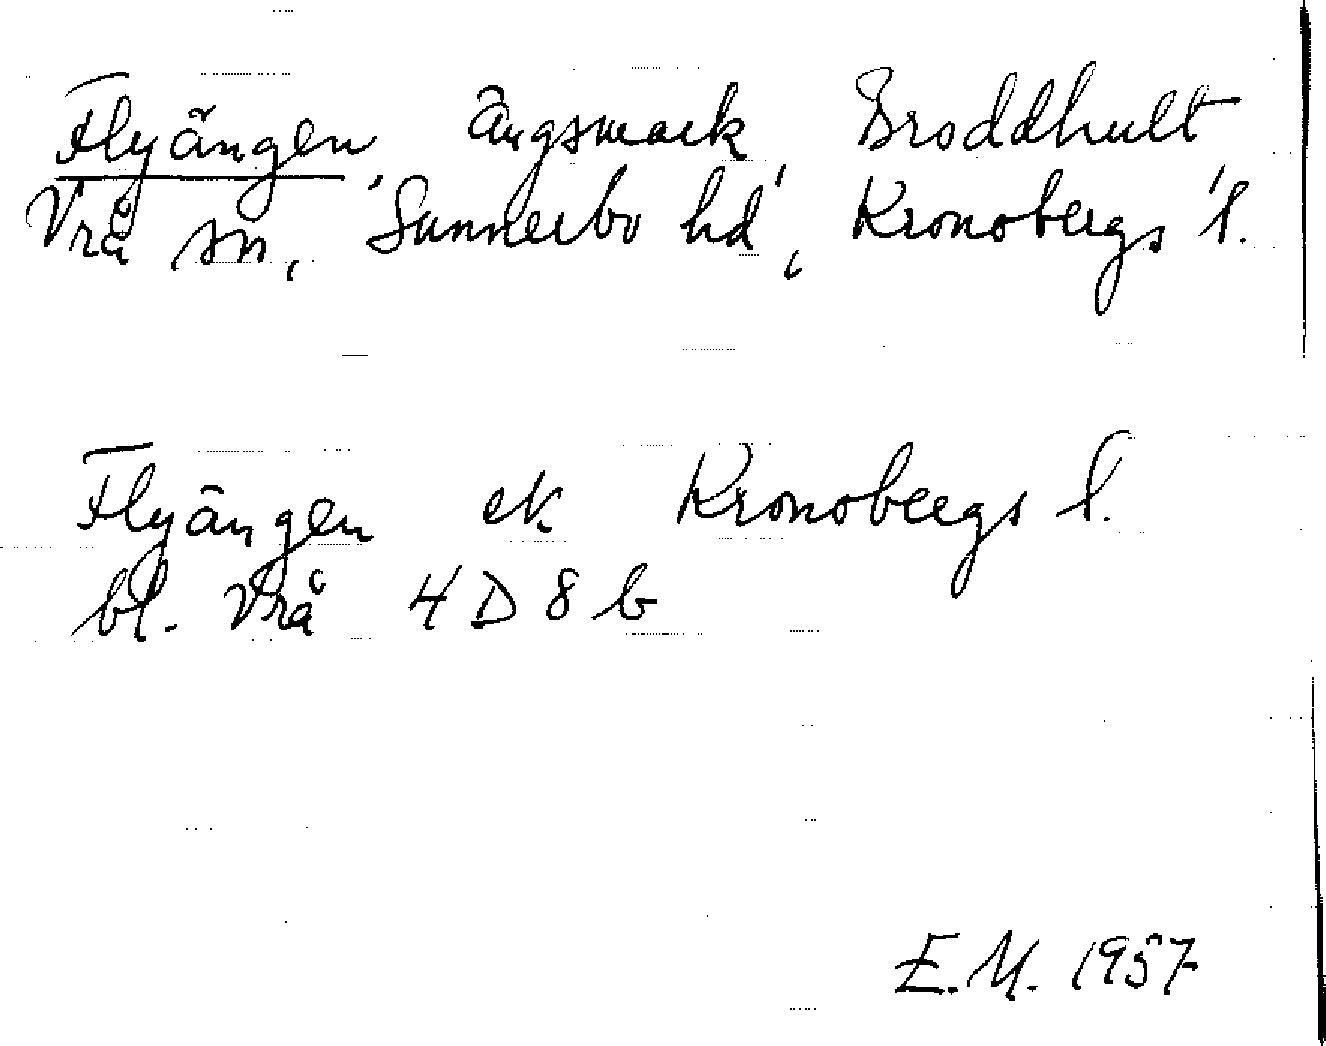 Flyängen, ängsmark, Broddhult
Vrå sn, Sunnerbo hd, Kronobergs l.
Flyängen ek. Kronobergs l.
bl. Vrå 4 D 8 b
E.M. 1957